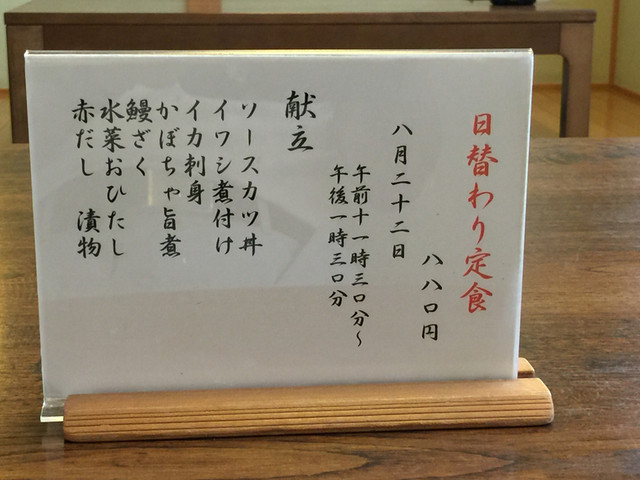 日替わり定食
八八〇円
八月二十二日
午前十一時三〇分〜
午後一時三〇分
献立
ソースカツ丼
イワシ煮付け
イカ刺身
かぼちゃ旨煮
鰻ざく
水菜おひたし
赤だし　漬物